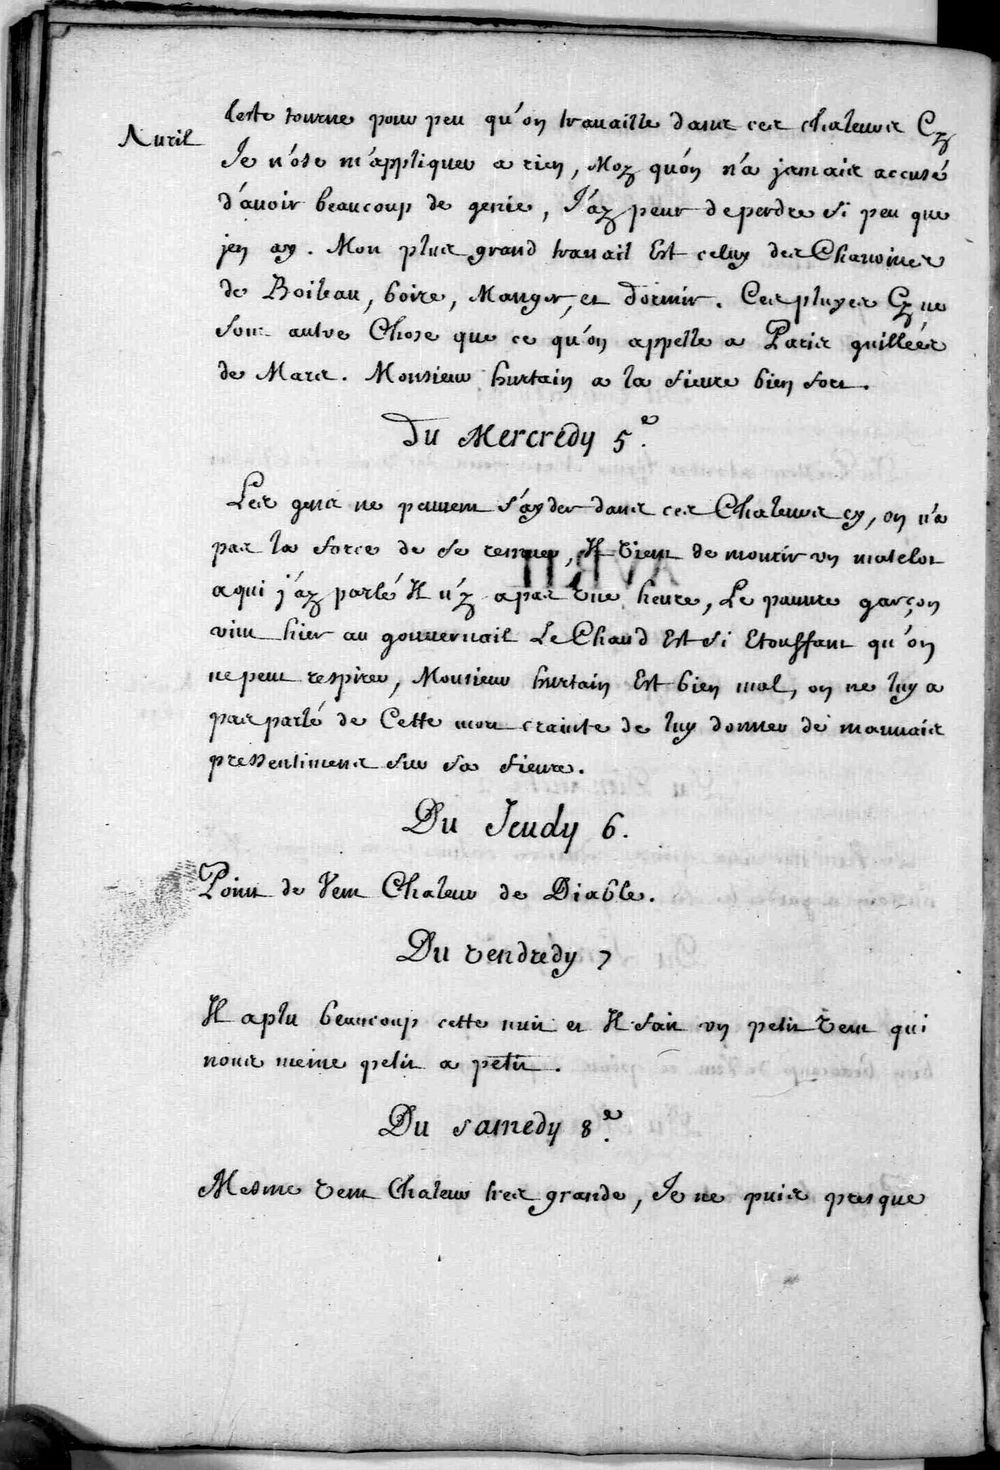 Avril
teste tourne pour peu qu'on travaille dans ces chaleurs Cy
Je n'ose m'appliquer a rien, Moy qu'on n'a jamais accusé
d'avoir beaucoup de genie, J'ay peur de perdre si peu que
jen ay. Mon plus grand travail Est celuy des Chanoines
de Boileau, boire, Manger, et dormir. Ces pluyes Cy ne
sont autre Chose que ce qu'on appelle a Paris guillées
de Mars. Monsieur hurtain a la fievre bien fort.
Du Mercredy 5e.
Les gens ne peuvent s'ayder dans ces Chaleurs cy, on n'a
pas la force de se remuer, Il vient de mourir un matelot
a qui j'ay parlé Il n'y a pas une heure, Le pauvre garçon
vint hier au gouvernail Le Chaud Est si Etouffant qu'on
ne peut respirer, Monsieur hurtain Est bien mal, on ne luy a
pas parlé de Cette mort crainte de luy donner de mauvais
pressentimens sur sa fievre.
Du Jeudy 6.
Point de Vent Chaleur de Diable.
Du vendredy 7
Il a plu beaucoup cette nuit et Il fait un petit vent qui
nous meine petit a petit.
Du samedy 8e.
Mesme vent Chaleur tres grande, Je ne puis presque